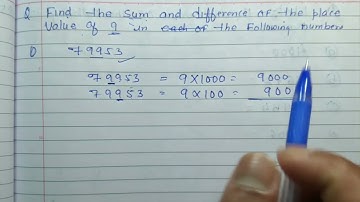 Q Find the sum and difference of the place
value of 9 in each of the following numbers
① 79953
79953 = 9×1000 = 9000
79953 = 9×100 = 900